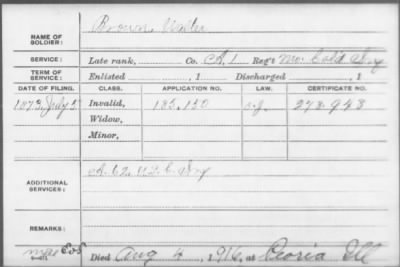 NAME OF SOLDIER: Brown, Walter
SERVICE: Late rank, Co. A, 1 Reg't Mo. Col'd Inf
TERM OF SERVICE: Enlisted , 1 Discharged , 1
DATE OF FILING. CLASS. APPLICATION NO. LAW. CERTIFICATE NO.
1873, July 5 Invalid, 183,150 273,943
Widow,
Minor,
ADDITIONAL SERVICES: A. 62. U.S.C. Inf
REMARKS:
Died Aug 4, 1916, at Peoria Ill